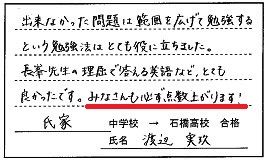 出来なかった問題は範囲を広げて勉強する
という勉強法はとても役に立ちました。
長峯先生の理屈で答える英語など、とても
良かったです。みなさんも必ず点数上がります!
氏家 中学校 → 石橋高校 合格
氏名 渡辺 実玖